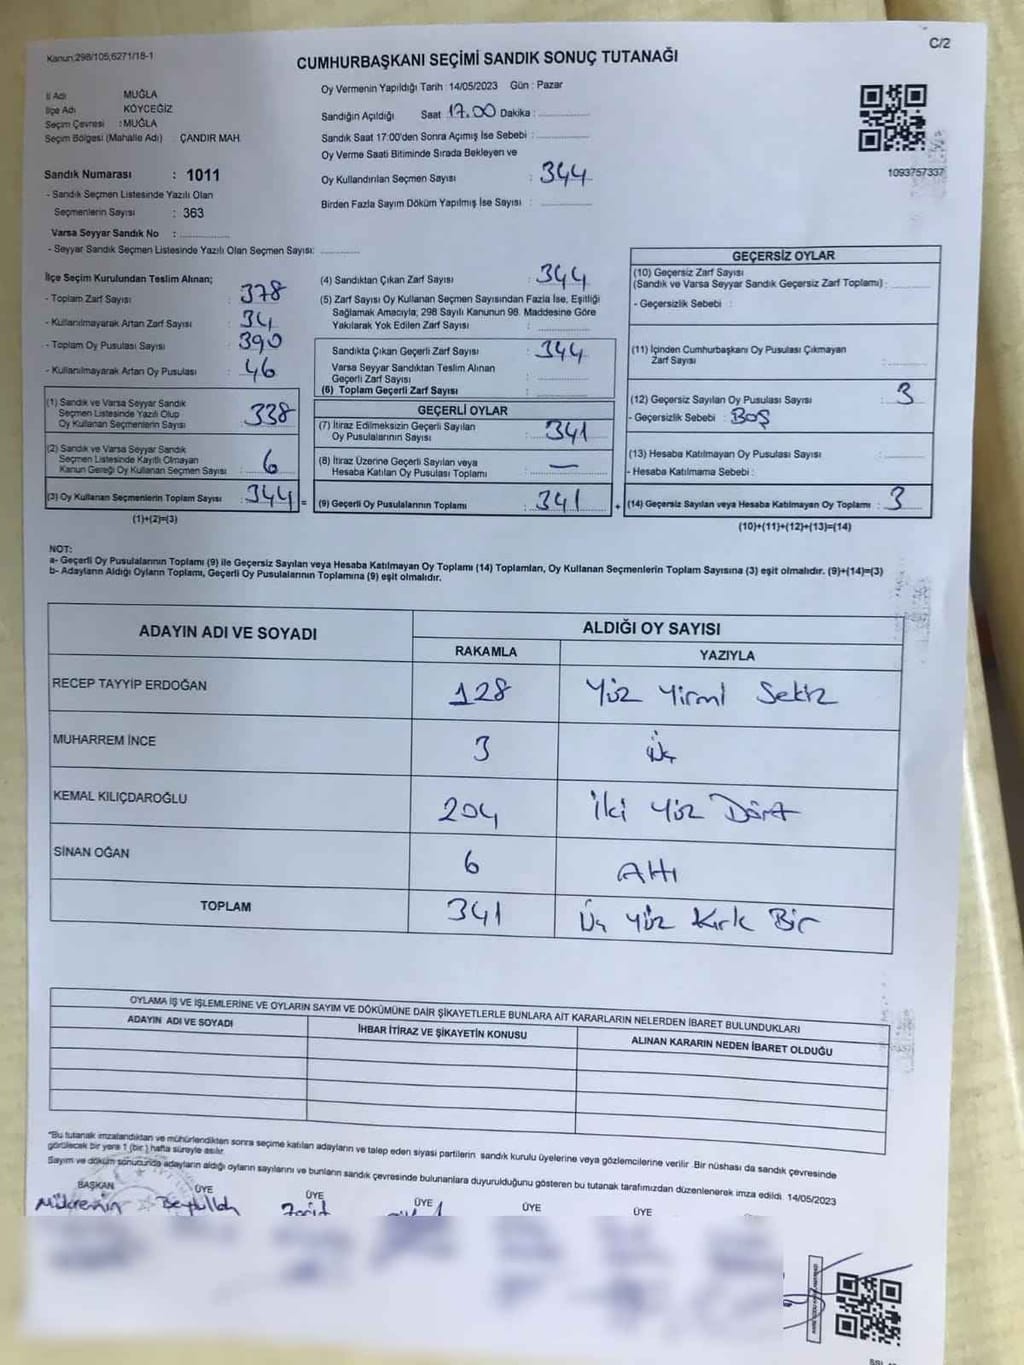 Kanun;298/105;6271/18-1
C/2
CUMHURBAŞKANI SEÇİMİ SANDIK SONUÇ TUTANAĞI
İl Adı MUĞLA
İlçe Adı KÖYCEĞİZ
Seçim Çevresi : MUĞLA
Seçim Bölgesi (Mahalle Adı) : ÇANDIR MAH.
Sandık Numarası : 1011
- Sandık Seçmen Listesinde Yazılı Olan
Seçmenlerin Sayısı : 363
Varsa Seyyar Sandık No :
- Seyyar Sandık Seçmen Listesinde Yazılı Olan Seçmen Sayısı:
Oy Vermenin Yapıldığı Tarih : 14/05/2023 Gün : Pazar
Sandığın Açıldığı Saat 17.00 Dakika :
Sandık Saat 17:00'den Sonra Açımış İse Sebebi :
Oy Verme Saati Bitiminde Sırada Bekleyen ve
Oy Kullandırılan Seçmen Sayısı : 344
Birden Fazla Sayım Döküm Yapılmış İse Sayısı :
1093757337
İlçe Seçim Kurulundan Teslim Alınan;
- Toplam Zarf Sayısı : 378
- Kullanılmayarak Artan Zarf Sayısı : 34
- Toplam Oy Pusulası Sayısı : 390
- Kullanılmayarak Artan Oy Pusulası : 46
(1) Sandık ve Varsa Seyyar Sandık
Seçmen Listesinde Yazılı Olup
Oy Kullanan Seçmenlerin Sayısı : 338
(2) Sandık ve Varsa Seyyar Sandık
Seçmen Listesinde Kayıtlı Olmayan
Kanun Gereği Oy Kullanan Seçmen Sayısı : 6
(3) Oy Kullanan Seçmenlerin Toplam Sayısı : 344 =
(1)+(2)=(3)
(4) Sandıktan Çıkan Zarf Sayısı : 344
(5) Zarf Sayısı Oy Kullanan Seçmen Sayısından Fazla İse, Eşitliği
Sağlamak Amacıyla; 298 Sayılı Kanunun 98. Maddesine Göre
Yakılarak Yok Edilen Zarf Sayısı :
Sandıkta Çıkan Geçerli Zarf Sayısı : 344
Varsa Seyyar Sandıktan Teslim Alınan
Geçerli Zarf Sayısı :
(6) Toplam Geçerli Zarf Sayısı :
GEÇERLİ OYLAR
(7) İtiraz Edilmeksizin Geçerli Sayılan
Oy Pusulalarının Sayısı : 341
(8) İtiraz Üzerine Geçerli Sayılan veya
Hesaba Katılan Oy Pusulası Toplamı : —
(9) Geçerli Oy Pusulalarının Toplamı : 341 +
GEÇERSİZ OYLAR
(10) Geçersiz Zarf Sayısı
(Sandık ve Varsa Seyyar Sandık Geçersiz Zarf Toplamı) :
- Geçersizlik Sebebi :
(11) İçinden Cumhurbaşkanı Oy Pusulası Çıkmayan
Zarf Sayısı :
(12) Geçersiz Sayılan Oy Pusulası Sayısı : 3
- Geçersizlik Sebebi : BOŞ
(13) Hesaba Katılmayan Oy Pusulası Sayısı :
- Hesaba Katılmama Sebebi :
(14) Geçersiz Sayılan veya Hesaba Katılmayan Oy Toplamı : 3
(10)+(11)+(12)+(13)=(14)
NOT:
a- Geçerli Oy Pusulalarının Toplamı (9) ile Geçersiz Sayılan veya Hesaba Katılmayan Oy Toplamı (14) Toplamları, Oy Kullanan Seçmenlerin Toplam Sayısına (3) eşit olmalıdır. (9)+(14)=(3)
b- Adayların Aldığı Oyların Toplamı, Geçerli Oy Pusulalarının Toplamına (9) eşit olmalıdır.
ADAYIN ADI VE SOYADI
ALDIĞI OY SAYISI
RAKAMLA YAZIYLA
RECEP TAYYİP ERDOĞAN 128 Yüz Yirmi Sekiz
MUHARREM İNCE 3 Üç
KEMAL KILIÇDAROĞLU 204 İki Yüz Dört
SİNAN OĞAN 6 Altı
TOPLAM 341 Üç Yüz Kırk Bir
OYLAMA İŞ VE İŞLEMLERİNE VE OYLARIN SAYIM VE DÖKÜMÜNE DAİR ŞİKAYETLERLE BUNLARA AİT KARARLARIN NELERDEN İBARET BULUNDUKLARI
ADAYIN ADI VE SOYADI İHBAR İTİRAZ VE ŞİKAYETİN KONUSU ALINAN KARARIN NEDEN İBARET OLDUĞU
*Bu tutanak imzalandıktan ve mühürlendikten sonra seçime katılan adayların ve talep eden siyasi partilerin sandık kurulu üyelerine veya gözlemcilerine verilir .Bir nüshası da sandık çevresinde
görülecek bir yere 1 (bir ) hafta süreyle asılır.
Sayım ve döküm sonucunda adayların aldığı oyların sayılarını ve bunların sandık çevresinde bulunanlara duyurulduğunu gösteren bu tutanak tarafımızdan düzenlenerek imza edildi. 14/05/2023
BAŞKAN ÜYE ÜYE ÜYE ÜYE ÜYE
Mükremin Beytullah